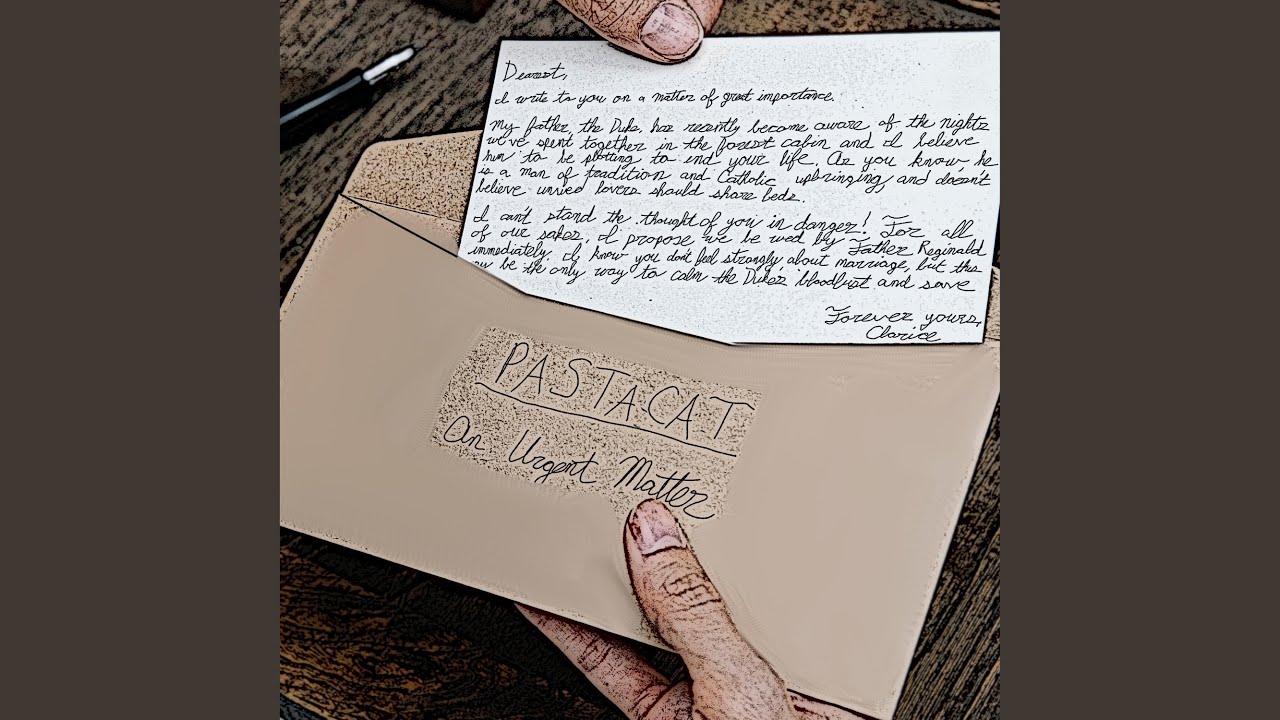 Dearest,
I write to you on a matter of great importance.
My father, the Duke, has recently become aware of the nights
we've spent together in the forest cabin and I believe
him to be plotting to end your life. As you know, he
is a man of tradition and Catholic upbringing and doesn't
believe unwed lovers should share beds.
I can't stand the thought of you in danger! For all
of our sakes, I propose we be wed by Father Reginald
immediately. I know you don't feel strongly about marriage, but this
be the only way to calm the Duke's bloodlust and save
Forever yours,
Clarice
PASTACAT
An Urgent Matter